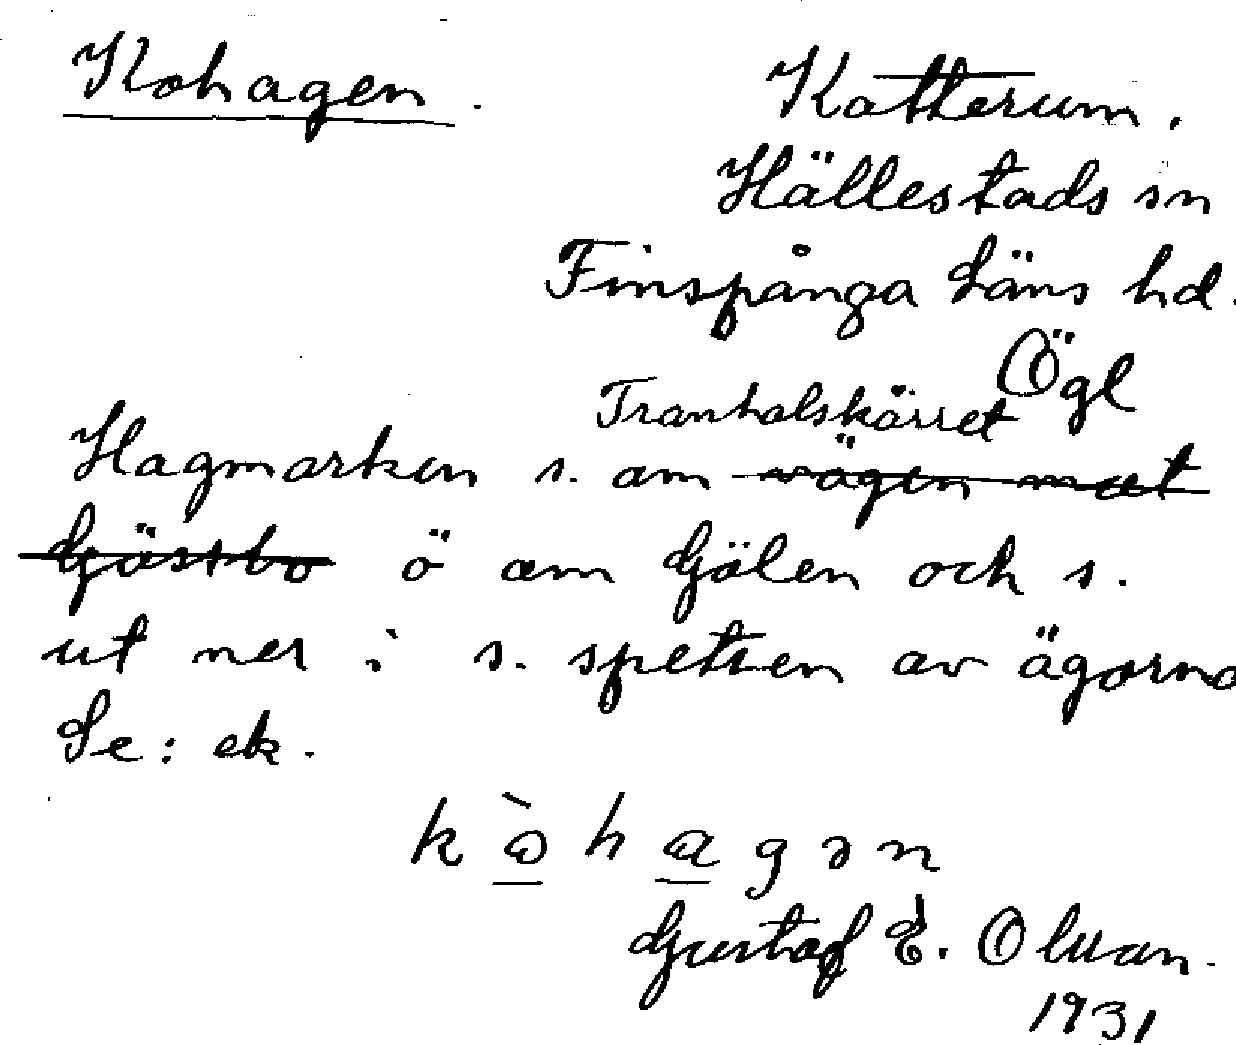 Kohagen.
Katterum.
Hällestads sn
Finspånga Läns hd.
Ögl
Tranhalskärret
Hagmarken s. om vägen mot
Gästbo ö om Gölen och s.
ut ner i s. spetsen av ägorna
Le: ek.
k ò h a g ə n
Gustaf E. Olsson.
1931